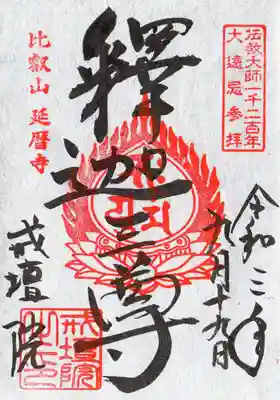 伝教大師一千二百年
大遠忌参拝
令和三年
九月十九日
釋迦三尊
比叡山 延暦寺
戒壇院
戒壇院